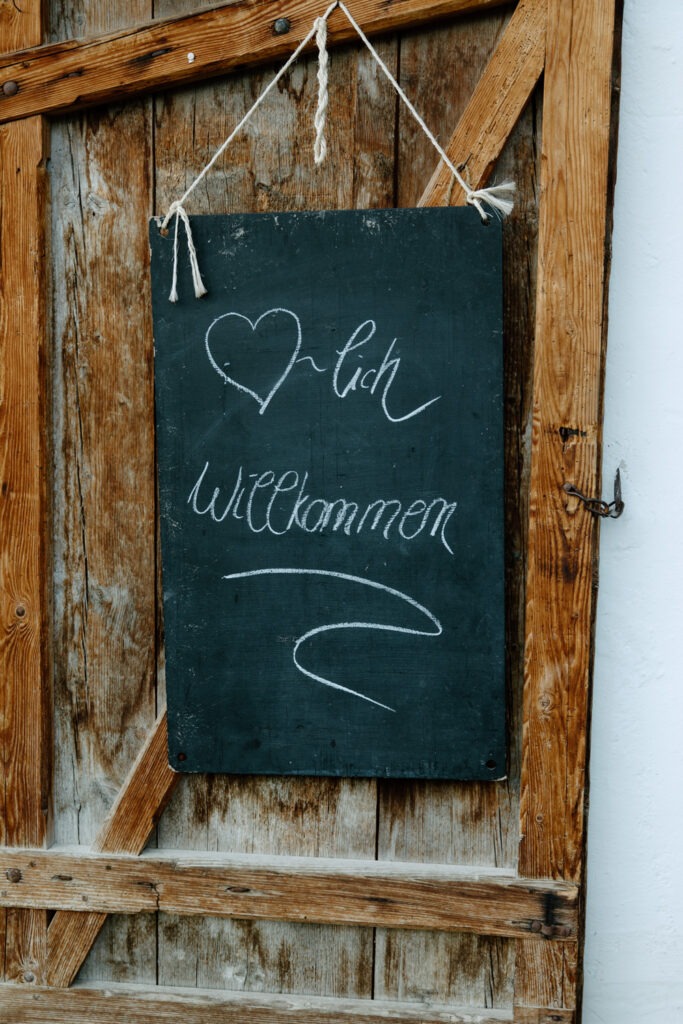 ♡~lich
Willkommen